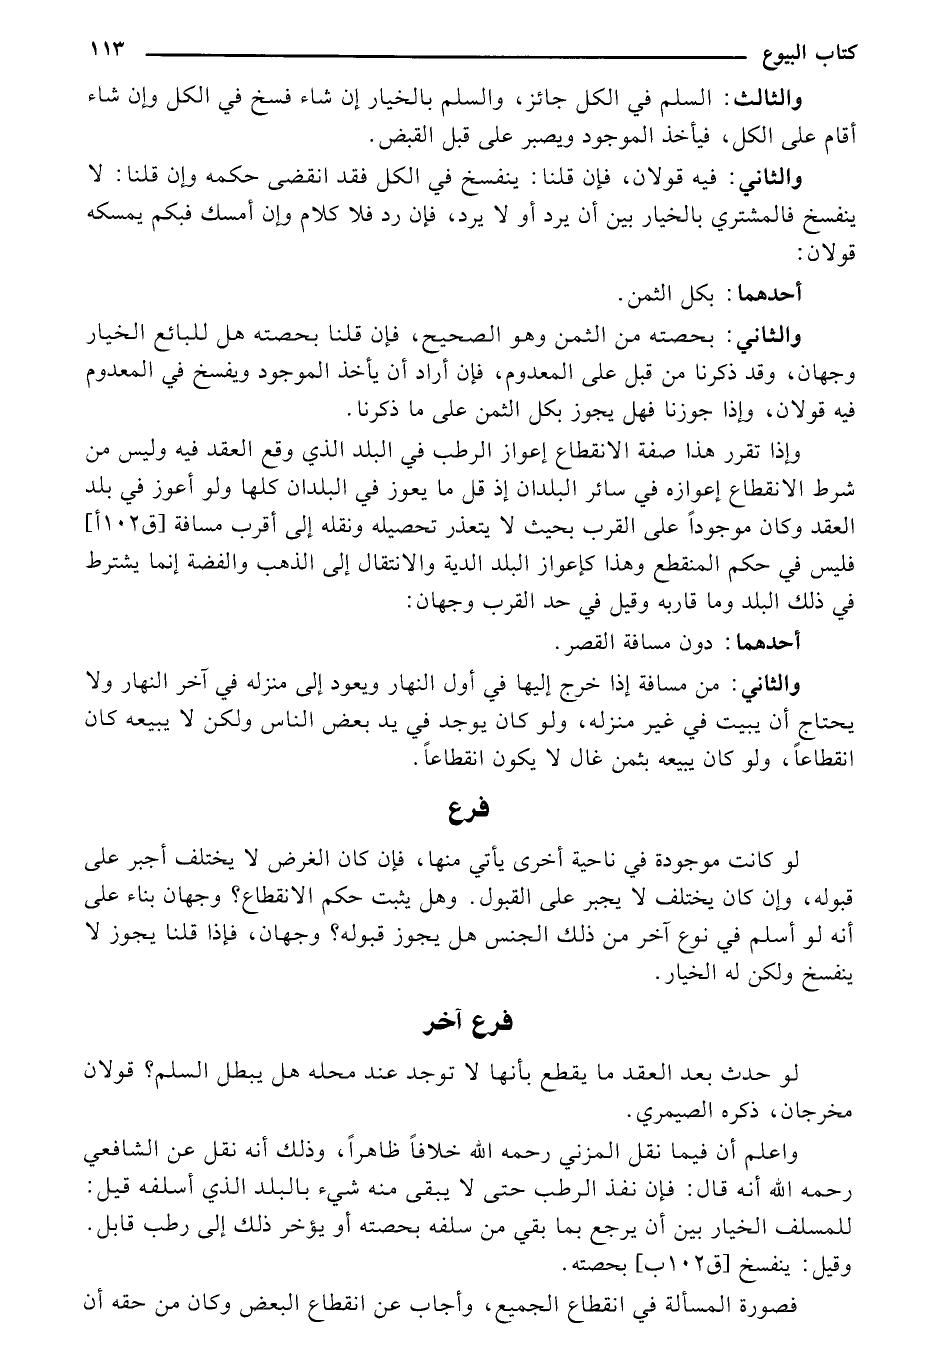 كتاب البيوع ١١٣
والثالث: السلم في الكل جائز، والسلم بالخيار إن شاء فسخ في الكل وإن شاء
أقام على الكل، فيأخذ الموجود ويصبر على قبل القبض.
والثاني: فيه قولان، فإن قلنا: ينفسخ في الكل فقد انقضى حكمه وإن قلنا: لا
ينفسخ فالمشتري بالخيار بين أن يرد أو لا يرد، فإن رد فلا كلام وإن أمسك فبكم يمسكه
قولان:
أحدهما: بكل الثمن.
والثاني: بحصته من الثمن وهو الصحيح، فإن قلنا بحصته هل للبائع الخيار
وجهان، وقد ذكرنا من قبل على المعدوم، فإن أراد أن يأخذ الموجود ويفسخ في المعدوم
فيه قولان، وإذا جوزنا فهل يجوز بكل الثمن على ما ذكرنا.
وإذا تقرر هذا صفة الانقطاع إعواز الرطب في البلد الذي وقع العقد فيه وليس من
شرط الانقطاع إعوازه في سائر البلدان إذ قل ما يعوز في البلدان كلها ولو أعوز في بلد
العقد وكان موجوداً على القرب بحيث لا يتعذر تحصيله ونقله إلى أقرب مسافة [ق١٠٢أ]
فليس في حكم المنقطع وهذا كإعواز البلد الدية والانتقال إلى الذهب والفضة إنما يشترط
في ذلك البلد وما قاربه وقيل في حد القرب وجهان:
أحدهما: دون مسافة القصر.
والثاني: من مسافة إذا خرج إليها في أول النهار ويعود إلى منزله في آخر النهار ولا
يحتاج أن يبيت في غير منزله، ولو كان يوجد في يد بعض الناس ولكن لا يبيعه كان
انقطاعاً، ولو كان يبيعه بثمن غال لا يكون انقطاعاً.
فرع
لو كانت موجودة في ناحية أخرى يأتي منها، فإن كان الغرض لا يختلف أجبر على
قبوله، وإن كان يختلف لا يجبر على القبول. وهل يثبت حكم الانقطاع؟ وجهان بناء على
أنه لو أسلم في نوع آخر من ذلك الجنس هل يجوز قبوله؟ وجهان، فإذا قلنا يجوز لا
ينفسخ ولكن له الخيار.
فرع آخر
لو حدث بعد العقد ما يقطع بأنها لا توجد عند محله هل يبطل السلم؟ قولان
مخرجان، ذكره الصيمري.
واعلم أن فيما نقل المزني رحمه الله خلافاً ظاهراً، وذلك أنه نقل عن الشافعي
رحمه الله أنه قال: فإن نفذ الرطب حتى لا يبقى منه شيء بالبلد الذي أسلفه قيل:
للمسلف الخيار بين أن يرجع بما بقي من سلفه بحصته أو يؤخر ذلك إلى رطب قابل.
وقيل: ينفسخ [ق١٠٢ب] بحصته.
فصورة المسألة في انقطاع الجميع، وأجاب عن انقطاع البعض وكان من حقه أن